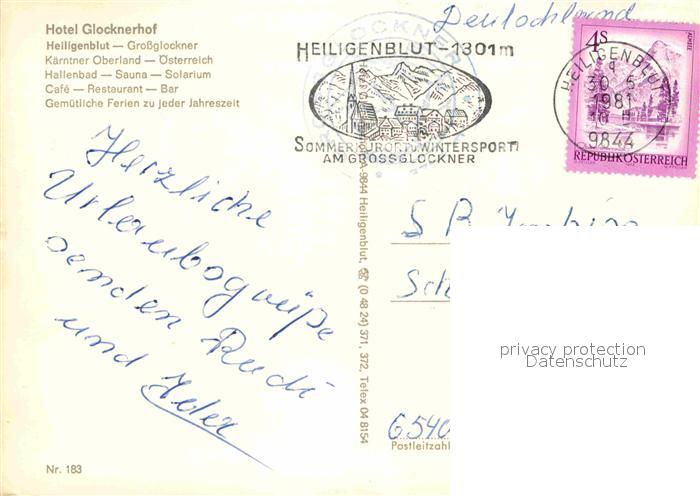 Hotel Glocknerhof
Heiligenblut — Großglockner
Kärntner Oberland — Österreich
Hallenbad — Sauna — Solarium
Café — Restaurant — Bar
Gemütliche Ferien zu jeder Jahreszeit
Deutschland
HEILIGENBLUT–1301m
SOMMERKURORT u WINTERSPORT
AM GROSSGLOCKNER
4s
HEILIGENBLUT
30.6.
1981
9844
REPUBLIK ÖSTERREICH
Herzliche
Urlaubsgrüße
senden Rudi
und
A-9844 Heiligenblut, ☎ (0 48 24) 371, 372, Telex 04 8154
Sch
privacy protection
Datenschutz
6540
Postleitzahl
Nr. 183